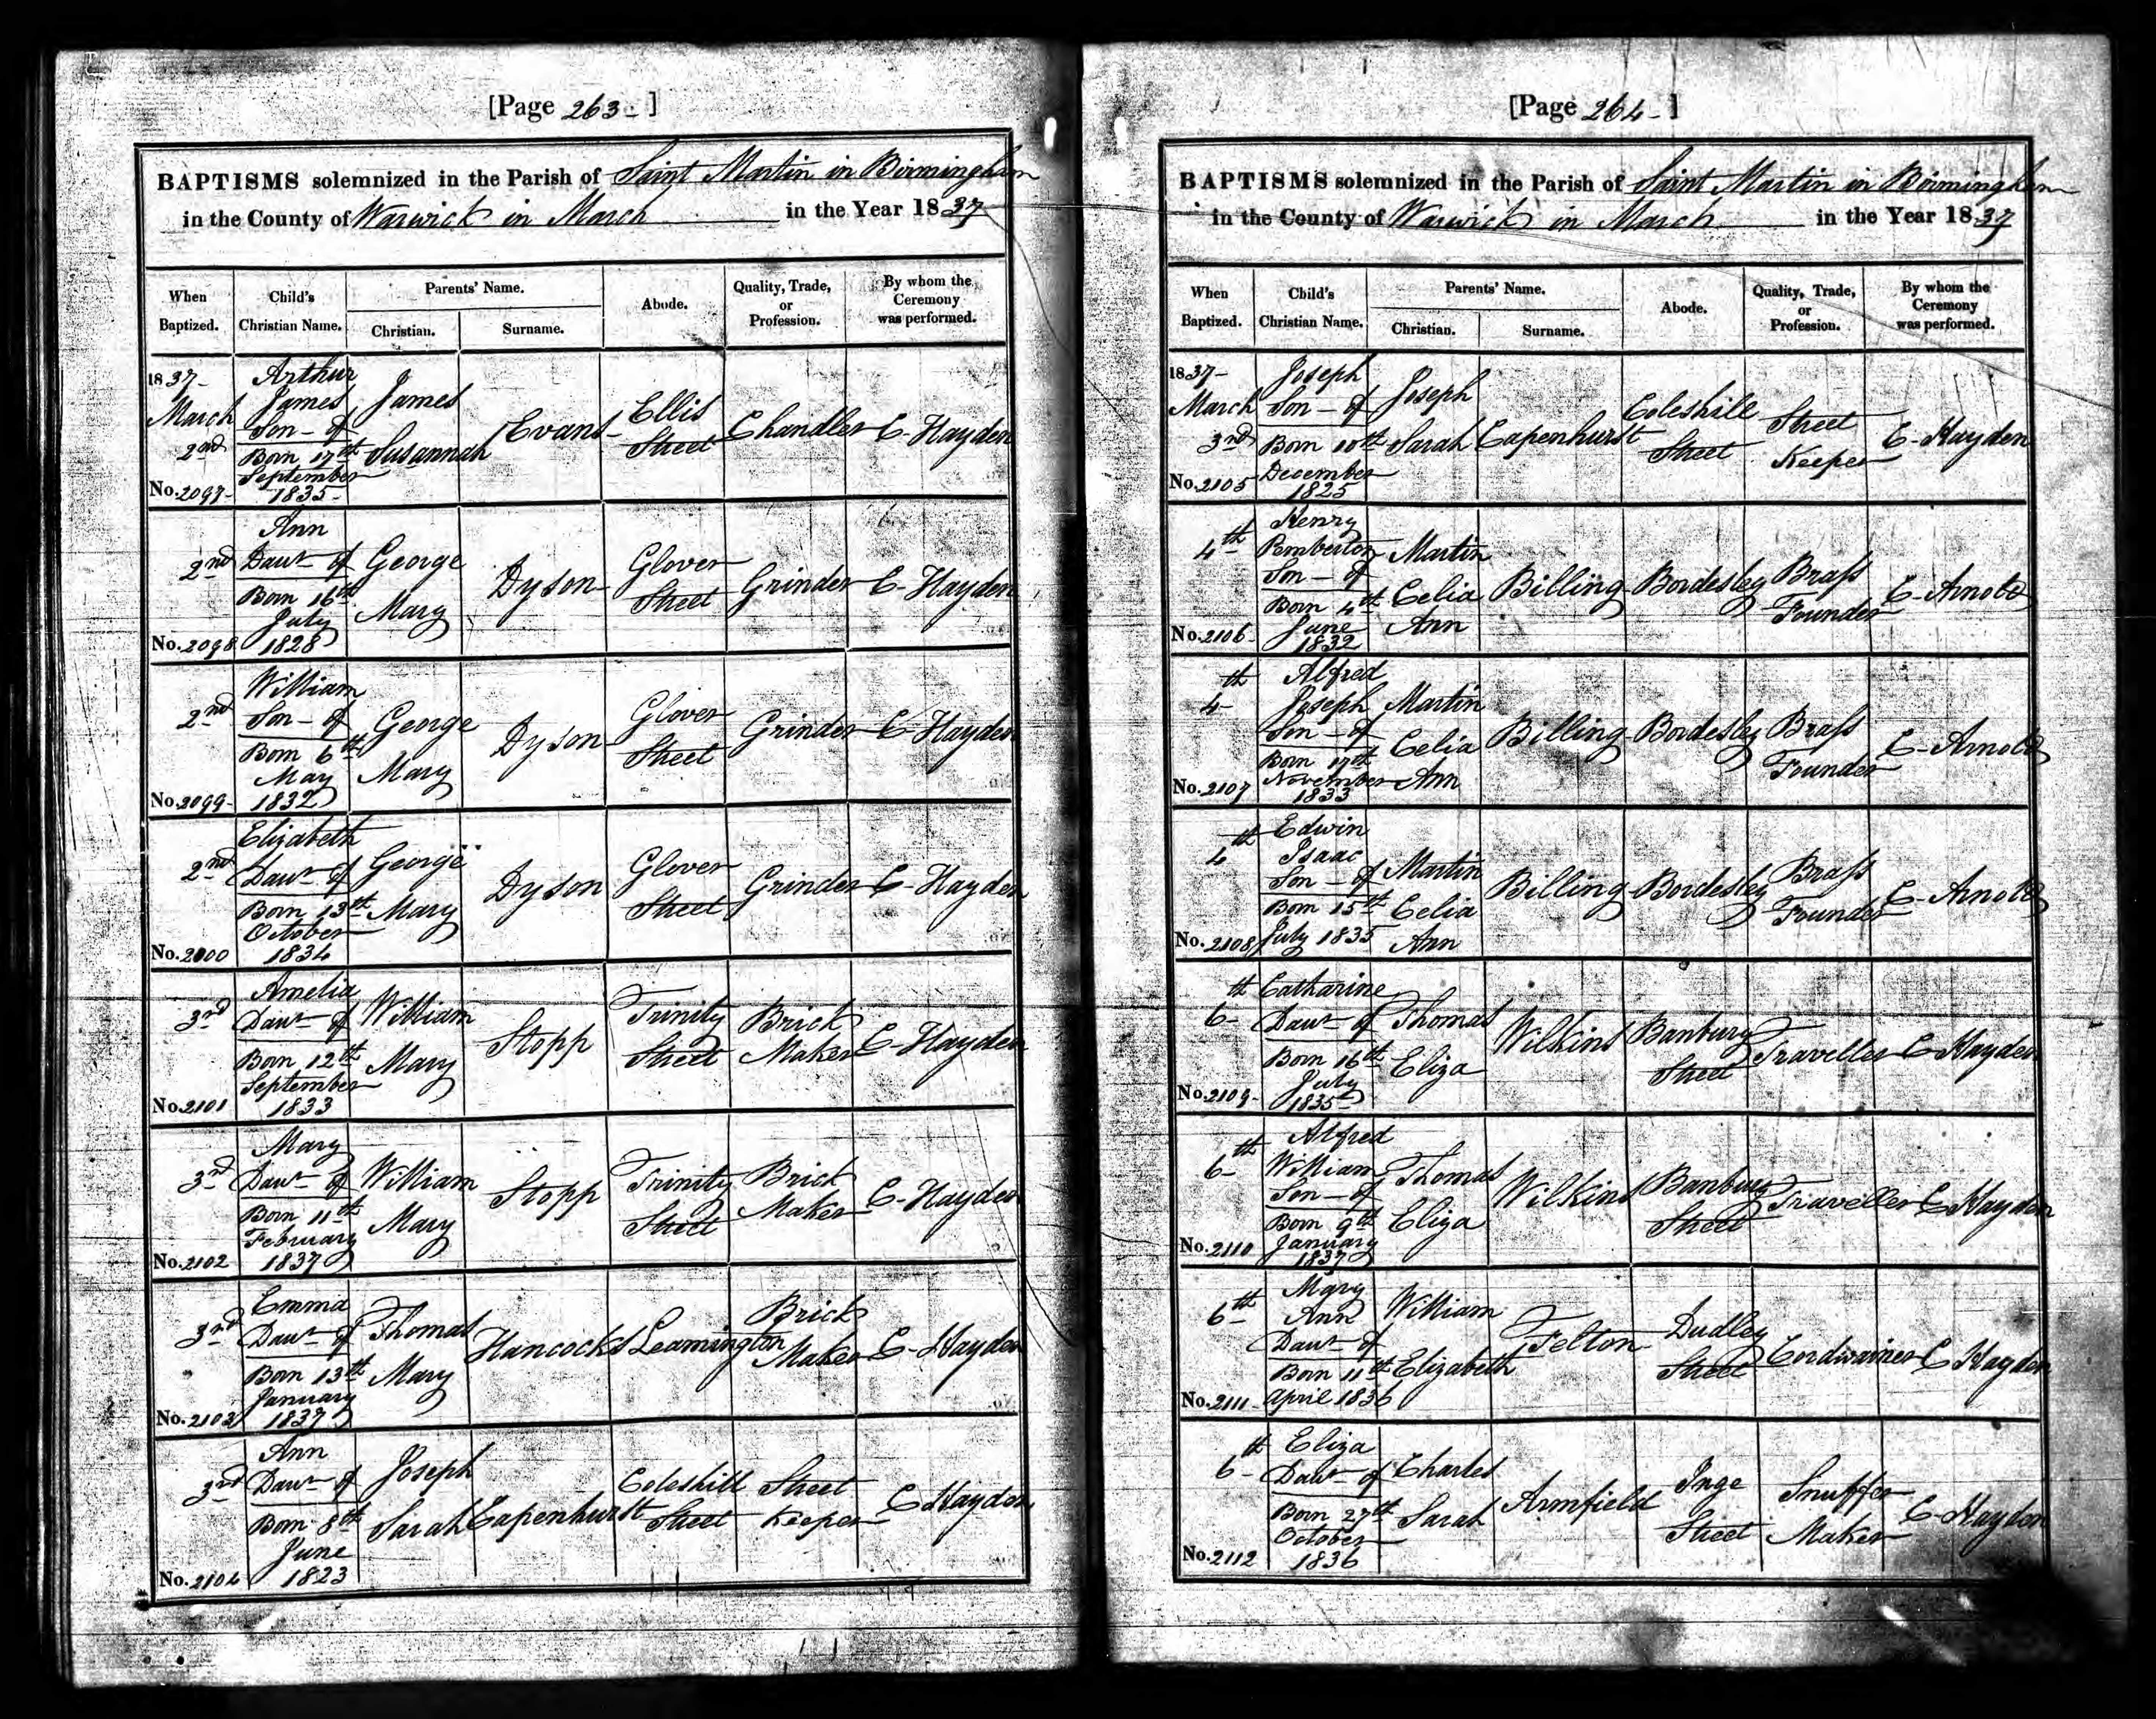 [Page 263-]
BAPTISMS solemnized in the Parish of Saint Martin in Birmingham
in the County of Warwick in March in the Year 1837
When Baptized.
Child's Christian Name.
Parents' Name.
Christian.
Surname.
Abode.
Quality, Trade, or Profession.
By whom the Ceremony was performed.
1837-
March
2nd
No. 2097-
Arthur
James
Son - of
Born 17th
September
1835-
James
Susannah
Evans
Ellis
Street
Chandler
C- Hayden
2nd
No. 2098
Ann
Daur of
Born 16th
July
1828
George
Mary
Dyson
Glover
Street
Grinder
C- Hayden
2nd
No. 2099-
William
Son - of
Born 6th
May
1832
George
Mary
Dyson
Glover
Street
Grinder
C- Hayden
2nd
No. 2100
Elizabeth
Daur of
Born 13th
October
1834
George
Mary
Dyson
Glover
Street
Grinder
C- Hayden
3rd
No. 2101
Amelia
Daur of
Born 12th
September
1833
William
Mary
Stopp
Trinity
Street
Brick
Maker
C- Hayden
3rd
No. 2102
Mary
Daur of
Born 11th
February
1837
William
Mary
Stopp
Trinity
Street
Brick
Maker
C- Hayden
3rd
No. 2103
Emma
Daur of
Born 13th
January
1837
Thomas
Mary
Hancocks
Leamington
Brick
Maker
C- Hayden
3rd
No. 2104
Ann
Daur of
Born 8th
June
1823
Joseph
Sarah
Capenhurst
Coleshill
Street
Street
Keeper
C Hayden
[Page 264-]
BAPTISMS solemnized in the Parish of Saint Martin in Birmingham
in the County of Warwick in March in the Year 1837
When Baptized.
Child's Christian Name.
Parents' Name.
Christian.
Surname.
Abode.
Quality, Trade, or Profession.
By whom the Ceremony was performed.
1837-
March
3rd
No. 2105
Joseph
Son - of
Born 10th
December
1825
Joseph
Sarah
Capenhurst
Coleshill
Street
Street
Keeper
C- Hayden
4th
No. 2106
Henry
Pemberton
Son - of
Born 4th
June
1832
Martin
Celia
Ann
Billing
Bordesley
Brass
Founder
C- Arnold
4th
No. 2107
Alfred
Joseph
Son - of
Born 17th
November
1833
Martin
Celia
Ann
Billing
Bordesley
Brass
Founder
C- Arnold
4th
No. 2108
Edwin
Isaac
Son - of
Born 15th
July 1835
Martin
Celia
Ann
Billing
Bordesley
Brass
Founder
C- Arnold
6th
No. 2109-
Catharine
Daur of
Born 16th
July
1835
Thomas
Eliza
Wilkins
Banbury
Street
Traveller
C Hayden
6th
No. 2110
Alfred
William
Son - of
Born 9th
January
1837
Thomas
Eliza
Wilkins
Banbury
Street
Traveller
C Hayden
6th
No. 2111-
Mary
Ann
Daur of
Born 11th
April 1836
William
Elizabeth
Felton
Dudley
Street
Cordwainer
C Hayden
6th
No. 2112
Eliza
Daur of
Born 27th
October
1836
Charles
Sarah
Armfield
Inge
Street
Snuffer
Maker
C- Hayden